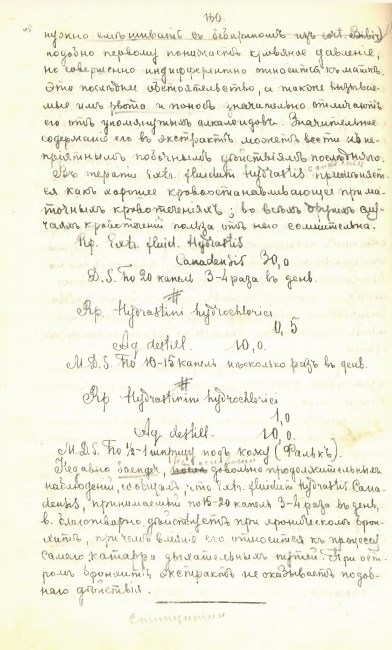 160.
нужно смѣшивать съ берберином изъ cort.
подобно первому понижаетъ кровяное давленіе,
но совершенно индифферентно относится къ маткѣ.
Это последнее обстоятельство, а также вызывае-
мые имъ рвота и поносъ значительно отличаютъ
его отъ упомянутыхъ алкалоидовъ. Значительное
содержаніе его въ экстрактѣ можетъ вести къ не-
пріятнымъ побочнымъ дѣйствіямъ последняго.
Въ терапіи Extr. fluidum Hydrastis примѣняет-
ся какъ хорошее кровоостанавливающее при ма-
точныхъ кровотеченіяхъ; во всѣхъ других слу-
чаяхъ кровотеченій польза отъ него сомнительна.
Rp. Extr. fluid. Hydrastis
Canadensis 30,0
D.S. По 20 капель 3-4 раза въ день.
#
Rp. Hydrastini hydrochlorici
0,5
Aq. destill. 10,0.
M.D.S. По 10-15 капель нѣсколько разъ въ день.
#
Rp Hydrastinini hydrochlorici
1,0
Aq destill. 10,0.
M.D.S. По ½-1 шприцу подъ кожу (Фалькъ).
Недавно довольно продолжительныхъ
наблюденій, сообщилъ, что Extr. fluidum Hydrastis Cana-
densis, принимаемый по 15-20 капель 3-4 раза въ день,
в. благотворно дѣйствуетъ при хроническомъ брон-
хитѣ, причемъ вліяніе его относится къ процессу
самаго катарра дыхательныхъ путей. При ост-
ромъ бронхитѣ экстрактъ не оказываетъ подоб-
наго дѣйствія.